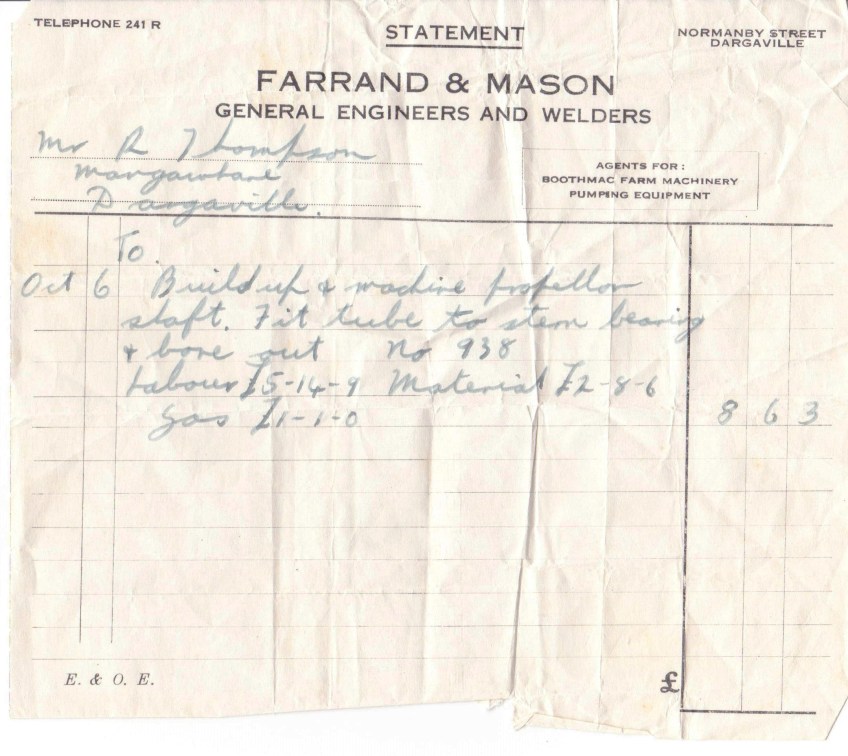 TELEPHONE 241 R
STATEMENT
NORMANBY STREET
DARGAVILLE
FARRAND & MASON
GENERAL ENGINEERS AND WELDERS
Mr R Thompson
Mangawhare
Dargaville.
AGENTS FOR :
BOOTHMAC FARM MACHINERY
PUMPING EQUIPMENT
To.
Oct 6 Build up & machine propellor
shaft. Fit tube to stern bearing
& bore out No 938
Labour £5-14-9 Material £2-8-6
Gas £1-1-0 8 6 3
E. & O. E. £